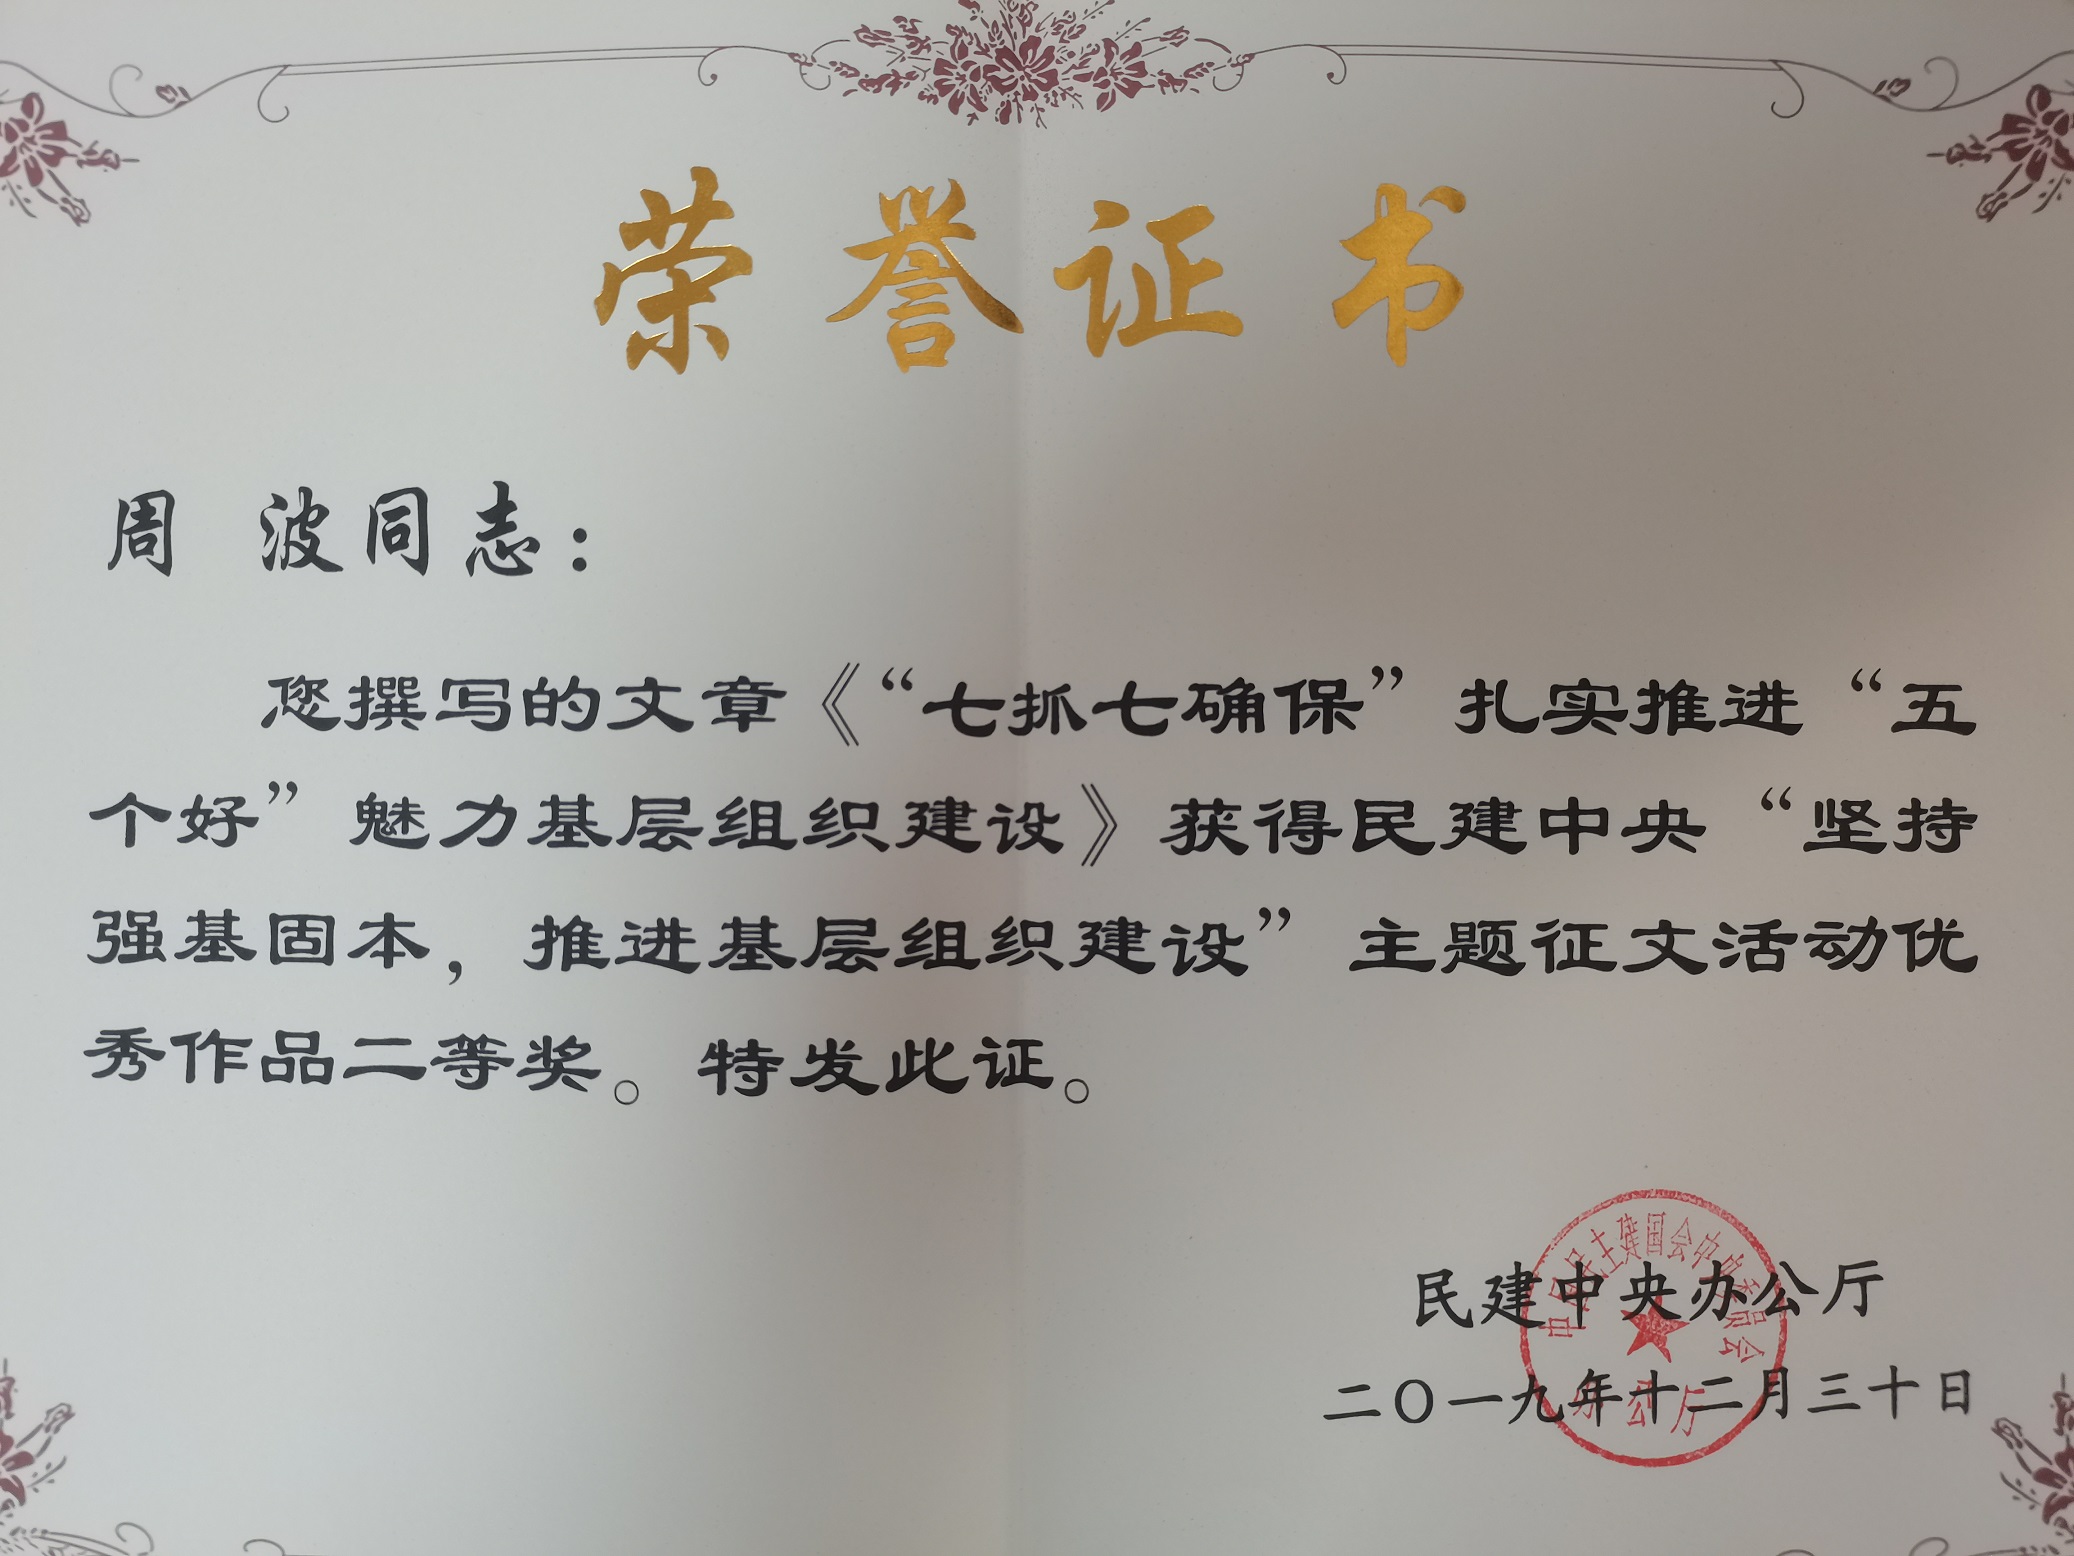 荣誉证书
周 波同志：
您撰写的文章《“七抓七确保”扎实推进“五
个好”魅力基层组织建设》获得民建中央“坚持
强基固本，推进基层组织建设”主题征文活动优
秀作品二等奖。特发此证。
中国民主建国会中央委员会
民建中央办公厅
二〇一九年十二月三十日
办公厅